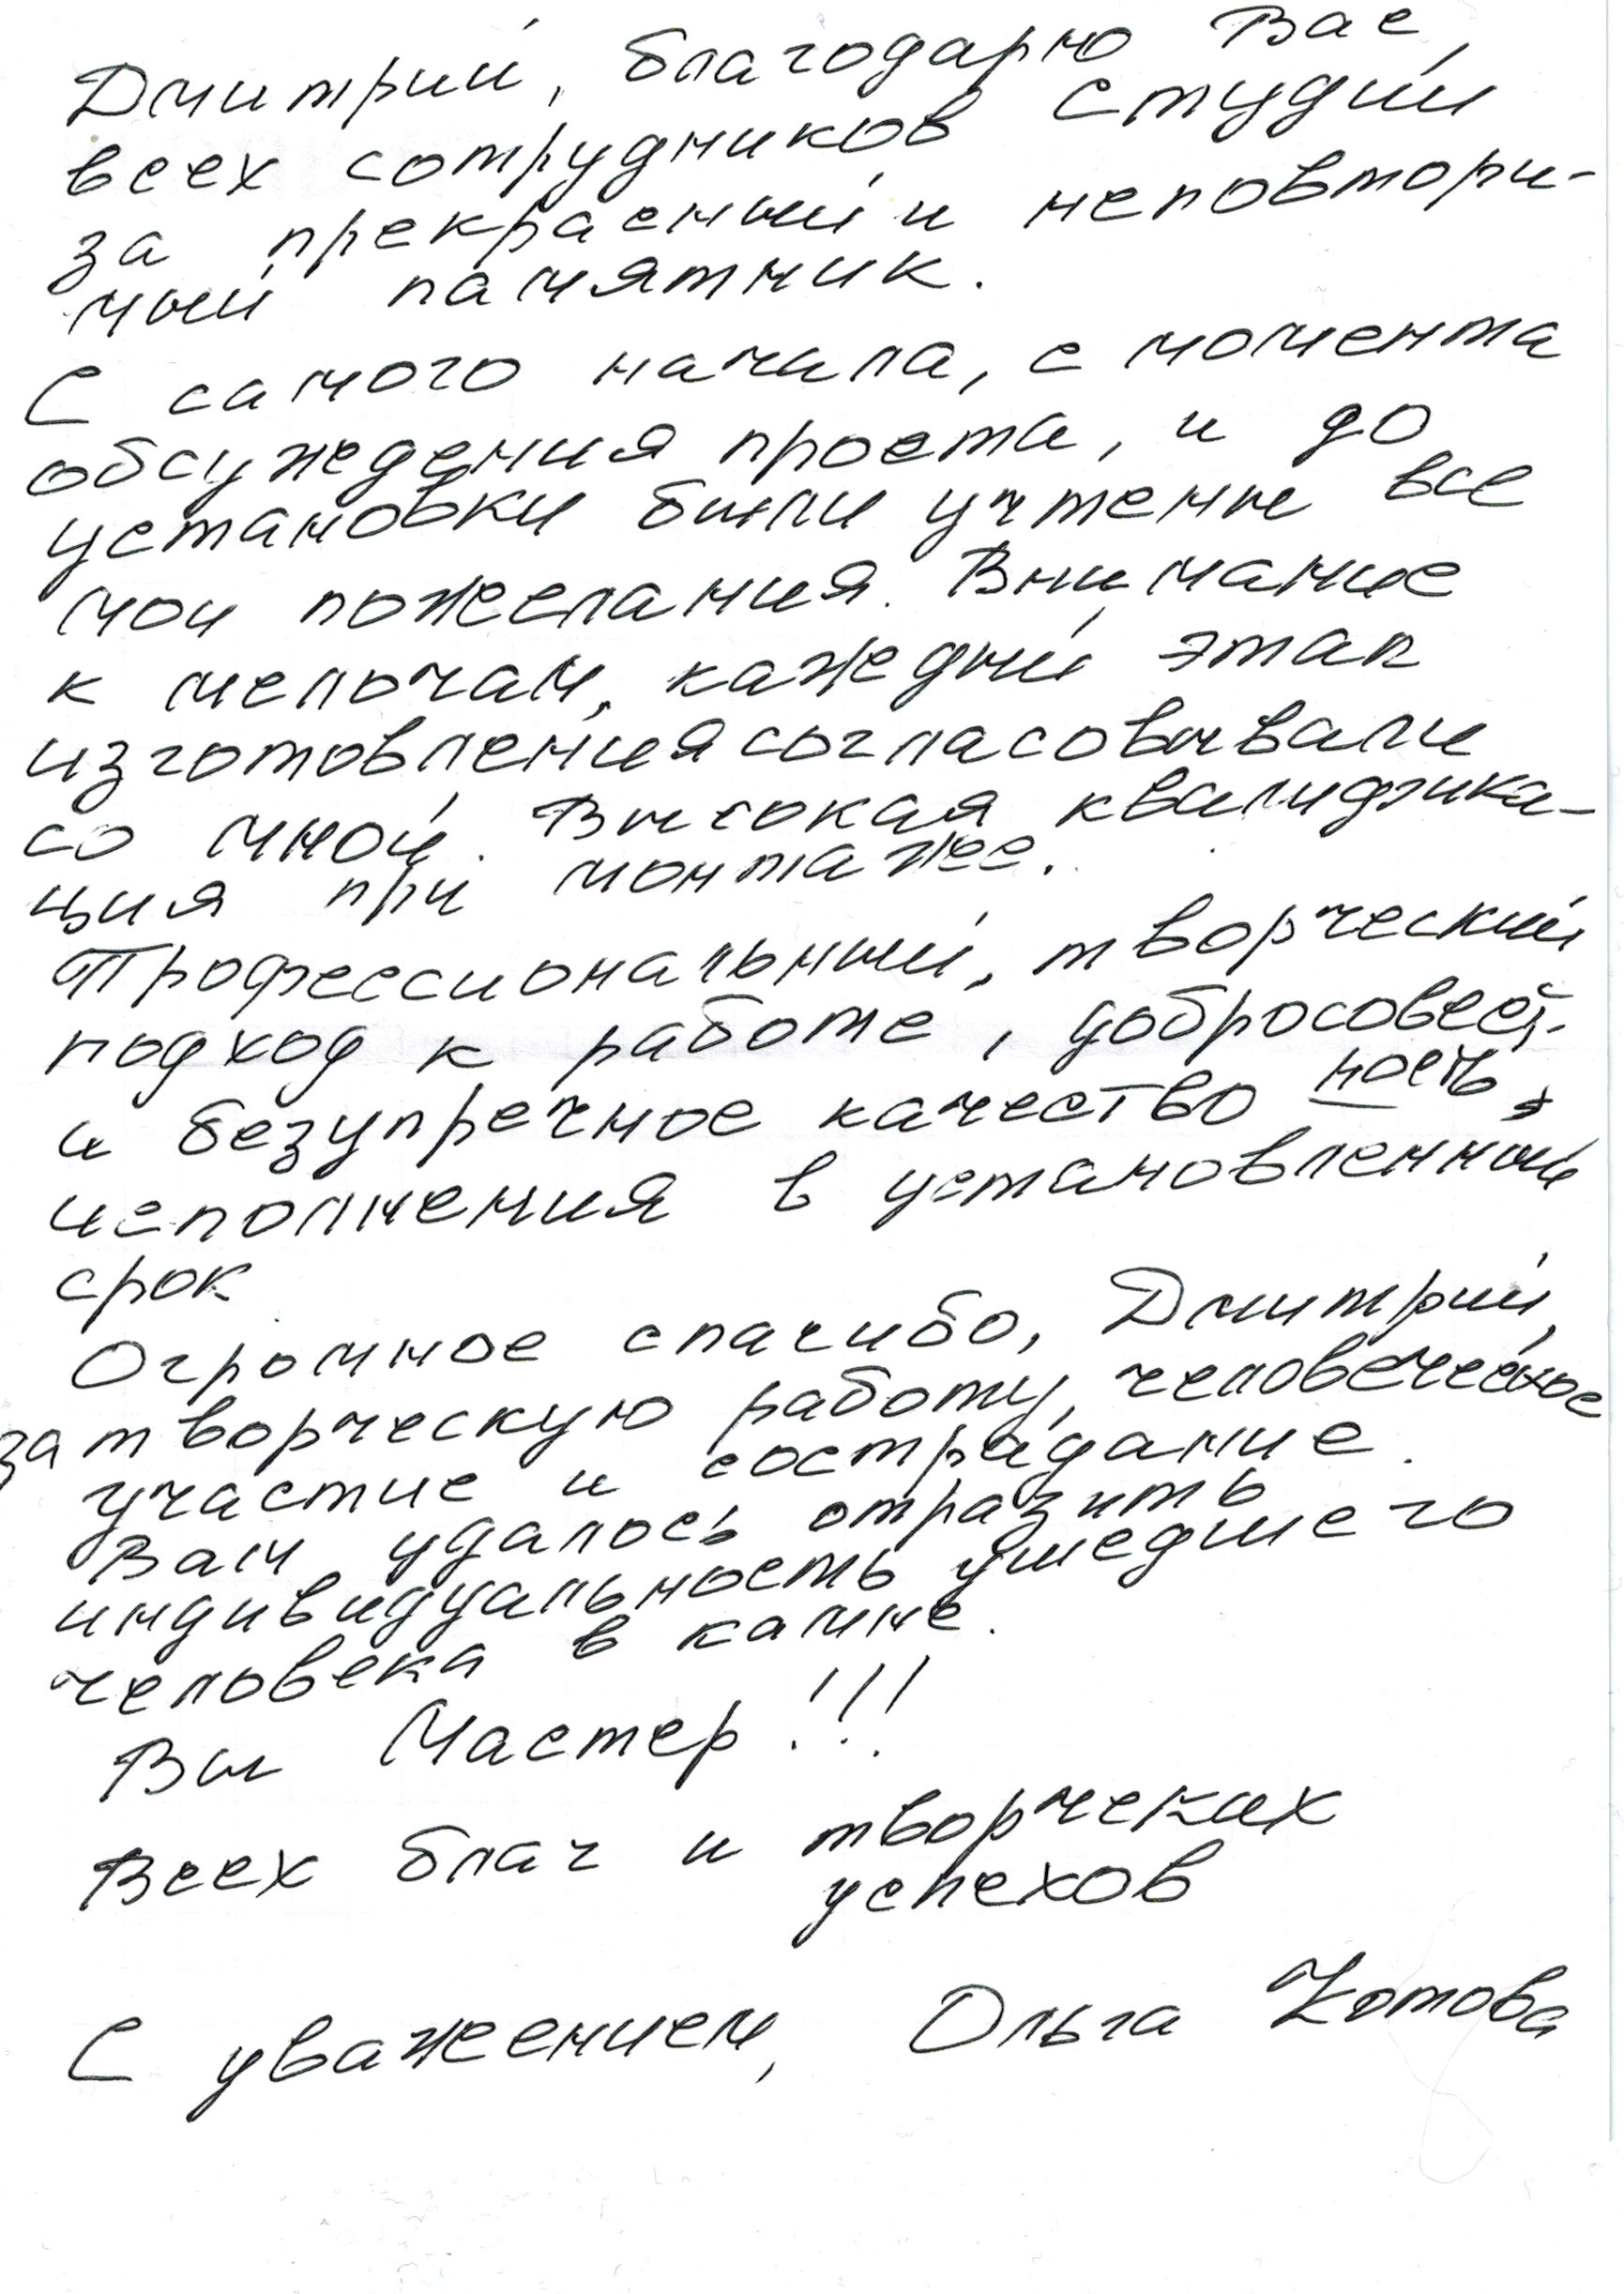 Дмитрий, благодарю Вас,
всех сотрудников студии
за прекрасный и неповтори-
мый памятник.
С самого начала, с момента
обсуждения проэта, и до
установки были учтены все
мои пожелания. Внимание
к мелочам, каждый этап
изготовления согласовывали
со мной. Высокая квалифика-
ция при монтаже.
Профессиональный, творческий
подход к работе, добросовест-
ность,
и безупречное качество
исполнения в установленный
срок
Огромное спасибо, Дмитрий,
за творческую работу, человеческое
участие и сострадание.
Вам удалось отразить
индивидуальность ушедшего
человека в камне.
Вы Мастер!!!
Всех благ и творческих
успехов
С уважением, Ольга Котова